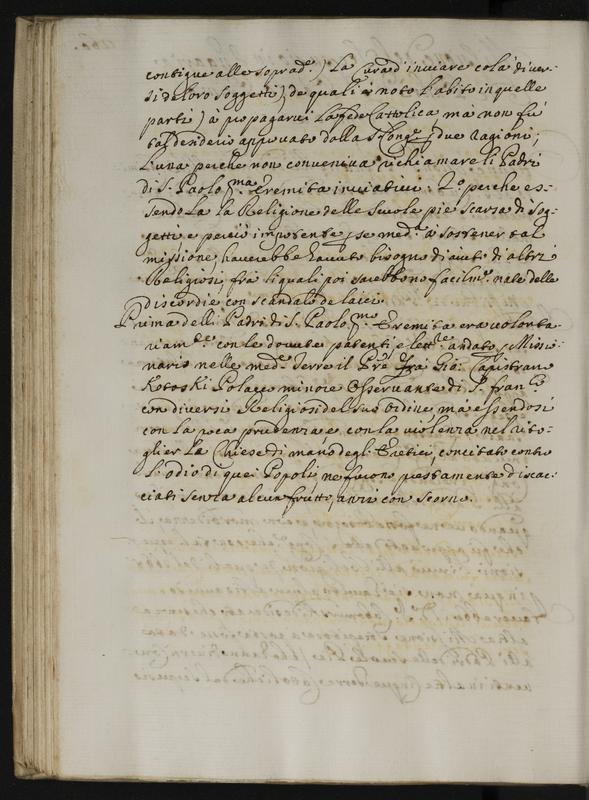 contigue alle soprad.e) la cura d'inviare colà diver-
si de loro soggetti (de quali è noto l'abito in quelle
parti) à propagarvi la fede Cattolica, mà non fù
tal desiderio approvato dalla S. Cong.e p due ragioni;
l'una perche non conveniva richiamare li Padri
di S. Paolo p.mo Eremita inviativi: 2.o perche es-
sendo la Religione delle Scuole pie scarsa di sog-
getti, e perciò impotente p se med.a à sostener tal
missione haverebbe havuto bisogno di aiuto di altri
Religiosi, frà li quali poi sarebbono facilm.e nate delle
Discordie con scandalo de laici.
Prima delli Padri di S. Paolo p.mo Eremita era volonta-
riam.te con le dovute patenti e lett.re andato p Missio-
nario nelle med.e Terre il P.re frà Gio: Capistrano
Kotoski Polacco minore Osservante di S. Fran.co
con diversi Religiosi del suo Ordine, mà essendosi
con la poca prudenza e con la violenza nel rito-
glier le Chiese di mano degl'Eretici, concitato contro
l'odio di quei Popoli, ne furono prestamente discac-
ciati senza alcun frutto, anzi con scorno.